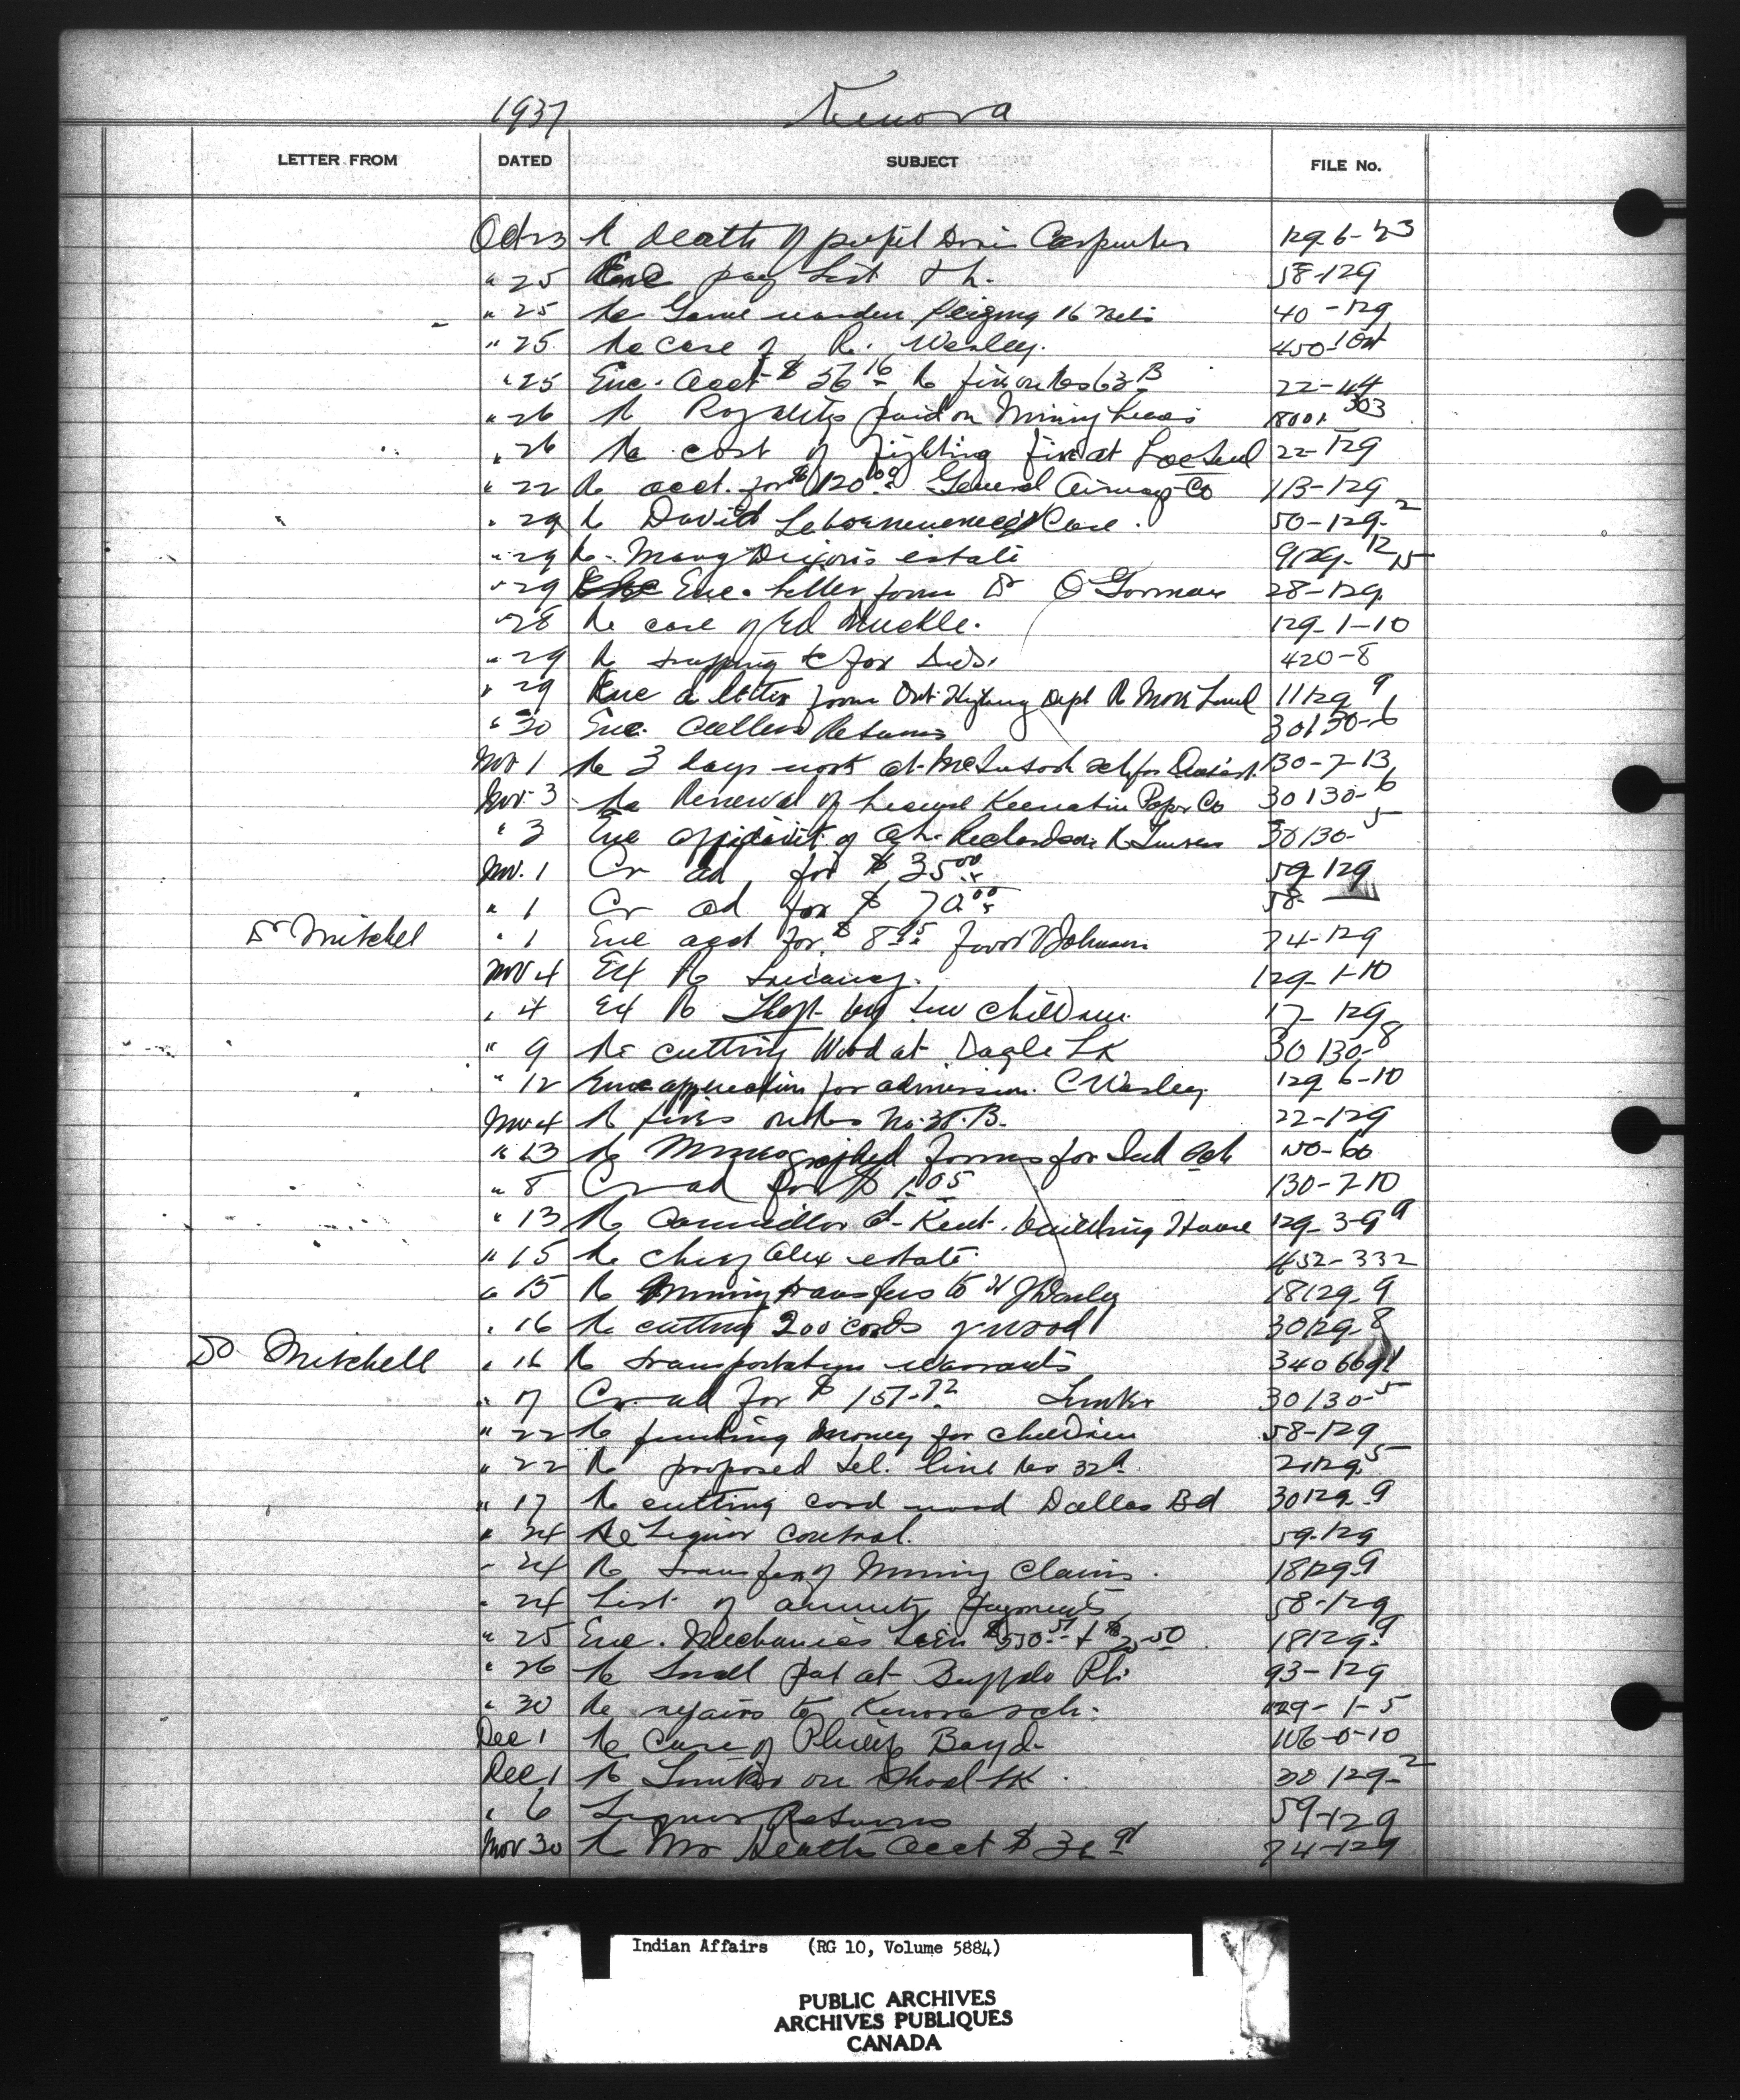 1937 Kenora
LETTER FROM DATED SUBJECT FILE No.
Oct 23 Re death of pupil Doris Carpenter 129-6-23
" 25 Enc pay list 58-129
" 25 Re Game warden seizing 16 nets 40-129
" 25 Re case of R. Wesley. 450-1 Ont
" 25 Enc. acct $ 56 16 Re fire on Res 63 B 22-44
" 26 Re Royalties paid on Mining 18001-303
" 26 Re cost of fighting fire at Lac Seul 22-129
" 22 Re acct. for $120 00 General Airways Co 113-129
" 29 Re David Case. 50-129-2
" 29 Re. Mary Dixon's estate 9129-12 15
" 29 Enc. letter from Dr O'Gorman 28-129
" 28 Re case of Ed Muckle. 129-1-10
" 29 Re trapping &c for Inds. 420-8
" 29 Enc a letter from Ont. Highway Dept Re 11129-9
" 30 Enc. Cutters Returns 30130-6
Nov 1 Re 3 days work at McIntosh sch for 130-7-13
Nov 3 Re Renewal of license Keewatin Paper Co 30130-6
" 3 Enc affidavit of Richardson Re 30130-5
Nov. 1 Cr ad for $ 35 00 59-129
" 1 Cr ad for $ 70 00 58-
Dr Mitchel " 1 Enc acct for $ 8 95 favor Johnson 74-129
Nov 4 Ext Re truancy. 129-1-10
" 4 Ext Re Theft by two children 17-129
" 9 Re cutting Wood at Eagle Lk 30130-8
" 12 Enc application for admission. C Wesley 129-6-10
Nov 4 Re fires on Res No. 38. B. 22-129
" 13 Re Mimeographed forms for Ind sch 150-60
" 8 Cr ad for $ 1.05 130-7-10
" 13 Re Councillor Kent. building House 129-3-9
" 15 Re Alex estate 452-332
" 15 Re Mining transfers to 18129-9
" 16 Re cutting 200 cords of wood 30129-8
Dr Mitchell " 16 Re transportation warrants
" 17 Cr ad for $ 157-72 30130-5
" 22 Re funding money for children 58-129
" 22 Re proposed tel. line Res 32A 21129-5
" 17 Re cutting cord wood Dalles Bd 30129-9
" 24 Re Liquor control. 59-129
" 24 Re transfer of Mining Claims. 18129-9
" 24 List of annuity payments 58-129
" 25 Enc. Mechanics Lien $550 51 + $25 50 18129-9
" 26 Re Small at Buffalo 93-129
" 30 Re repairs to Kenora sch. 129-1-5
Dec 1 Re Case of Philip Boyd 106-0-10
Dec 1 Re Timber on Shoal Lk. 30129-2
" 6 Liquor Returns 59-129
Nov 30 Re Mr Heath acct $ 74-129
Indian Affairs (RG 10, Volume 5884)
PUBLIC ARCHIVES
ARCHIVES PUBLIQUES
CANADA